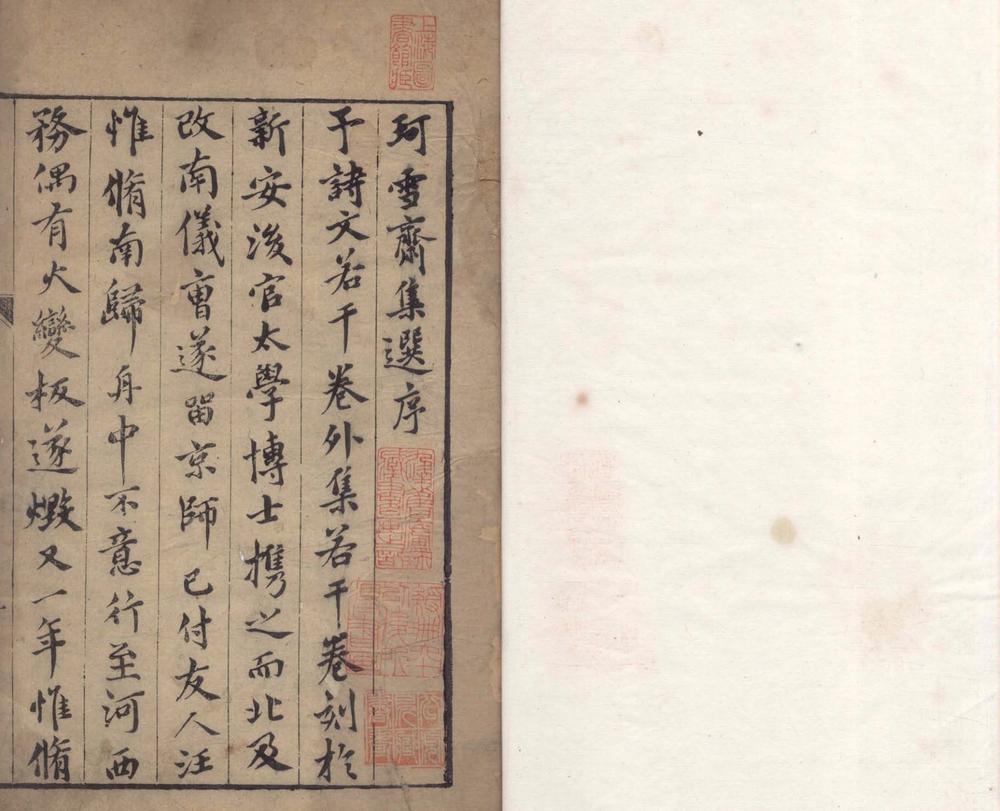 珂雪齋集選序
予詩文若干卷外集若干卷刻於
新安後官太學博士携之而北及
改南儀曹遂留京師已付友人汪
惟脩南歸舟中不意行至河西
務偶有火變板遂燬又一年惟脩
上海圖書館藏